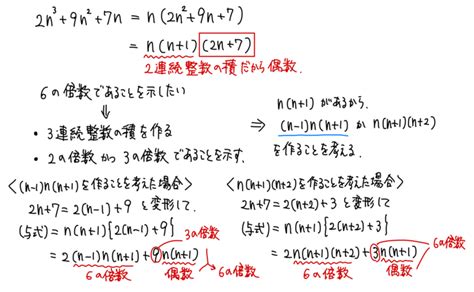 2n³+9n²+7n = n(2n²+9n+7)
= n(n+1)(2n+7)
2連続整数の積だから偶数.
6の倍数であることを示したい
⇓
• 3連続整数の積を作る
• 2の倍数かつ3の倍数であることを示す.
n(n+1)があるから.
⇒ (n-1)n(n+1) か n(n+1)(n+2)
を作ることを考える.
<(n-1)n(n+1)を作ることを考えた場合>
2n+7=2(n-1)+9 と変形して.
(与式)=n(n+1){2(n-1)+9}
3の倍数
=2(n-1)n(n+1)+9n(n+1)
6の倍数 偶数 6の倍数
<n(n+1)(n+2)を作ることを考えた場合>
2n+7=2(n+2)+3 と変形して.
(与式)=n(n+1){2(n+2)+3}
6の倍数
=2n(n+1)(n+2)+3n(n+1)
6の倍数 偶数